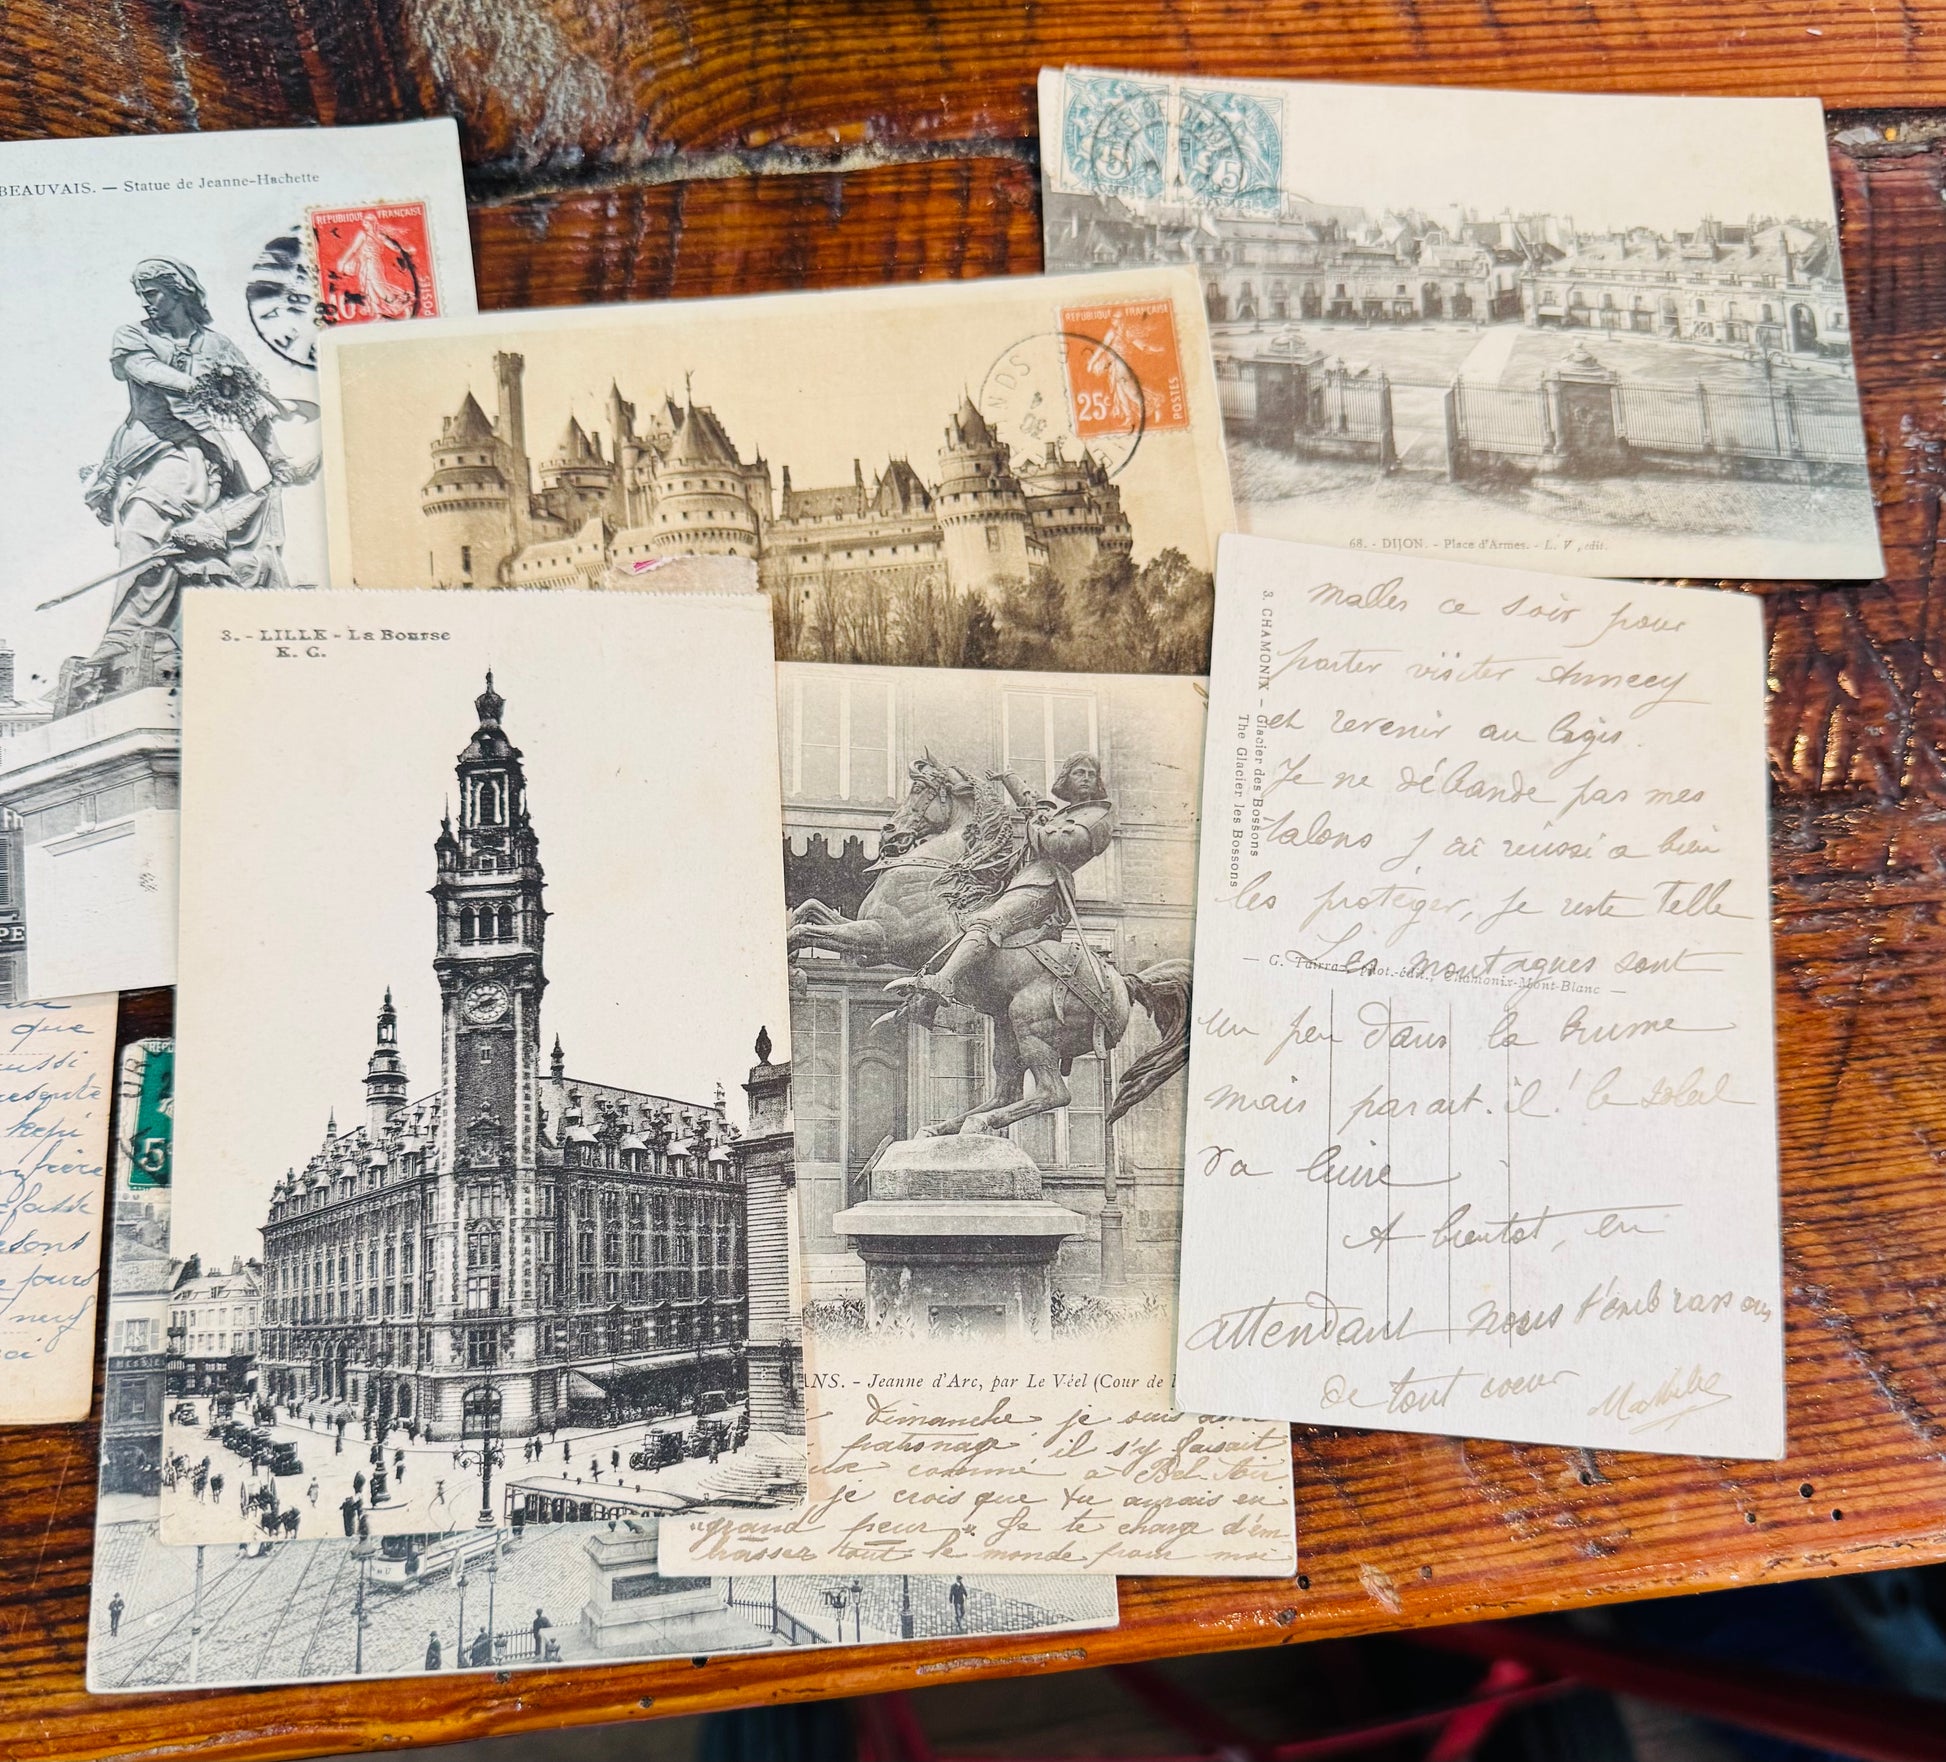 BEAUVAIS. — Statue de Jeanne-Hachette
REPUBLIQUE FRANÇAISE
10
POSTES
REPUBLIQUE FRANÇAISE
25c
POSTES
5
5
68. - DIJON. - Place d'Armes. - L. V., édit.
3. - LILLE - La Bourse
E. C.
que
kepi
frère
sont
jours
neuf
5
ANS. - Jeanne d'Arc, par Le Véel (Cour de l
Dimanche je suis
patronage il s'y faisait
comme à Bel Air
je crois que tu aurais eu
"grand peur". Je te charge d'em
brasser tout le monde pour moi
3. CHAMONIX - Glacier des Bossons
The Glacier les Bossons
ce soir pour
visiter Annecy
et revenir au logis.
Je ne débande pas mes
talons j'ai réussi a bien
les protéger, je reste telle
Les montagnes sont
— G. Tairraz, phot.-édit., Chamonix-Mont-Blanc —
un peu dans la brume
mais parait-il! le soleil
va luire
A bientot, en
attendant nous t'embrassons
de tout coeur
Mathilde